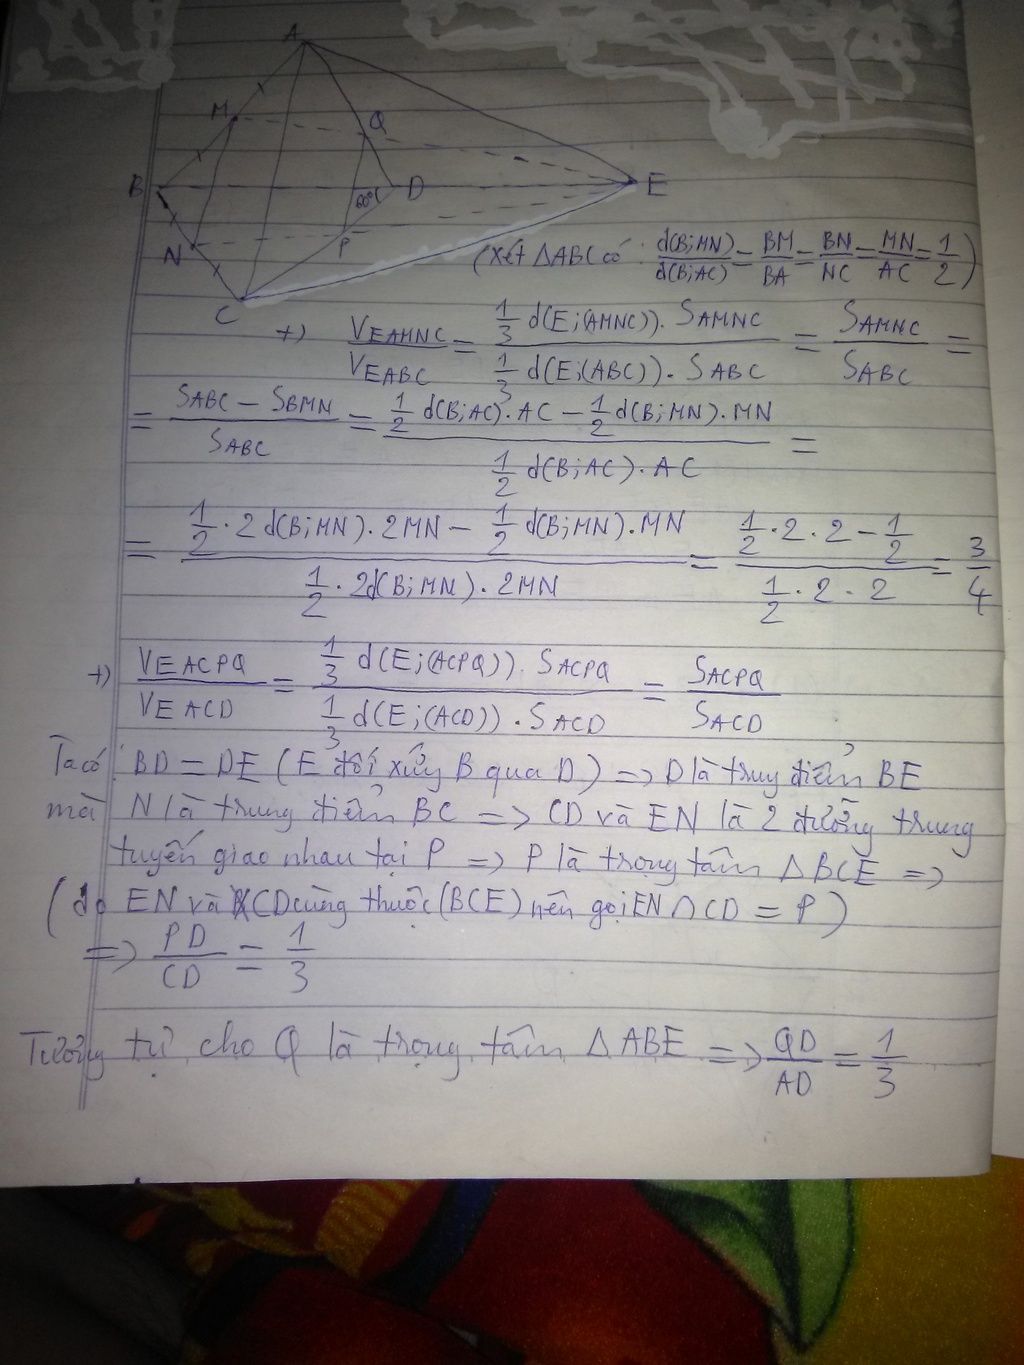 A
M
Q
B
D
E
60°
N
P
C
(Xét ΔABC có: d(B;MN)/d(B;AC) = BM/BA = BN/NC = MN/AC = 1/2)
+) V_EAMNC/V_EABC = (1/3 d(E;(AMNC)). S_AMNC)/(1/3 d(E;(ABC)). S_ABC) = S_AMNC/S_ABC =
= (S_ABC − S_BMN)/S_ABC = (1/2 d(B;AC). AC − 1/2 d(B;MN). MN)/(1/2 d(B;AC). AC) =
= (1/2 . 2 d(B;MN). 2MN − 1/2 d(B;MN). MN)/(1/2 . 2d(B;MN). 2MN) = (1/2 . 2 . 2 − 1/2)/(1/2 . 2 . 2) = 3/4
+) V_EACPQ/V_EACD = (1/3 d(E;(ACPQ)). S_ACPQ)/(1/3 d(E;(ACD)). S_ACD) = S_ACPQ/S_ACD
Ta có: BD = DE (E đối xứng B qua D) => D là trung điểm BE
mà N là trung điểm BC => CD và EN là 2 đường trung
tuyến giao nhau tại P => P là trọng tâm ΔBCE =>
(do EN và CD cùng thuộc (BCE) nên gọi EN ∩ CD = P)
=> PD/CD = 1/3
Tương tự cho Q là trọng tâm ΔABE => QD/AD = 1/3